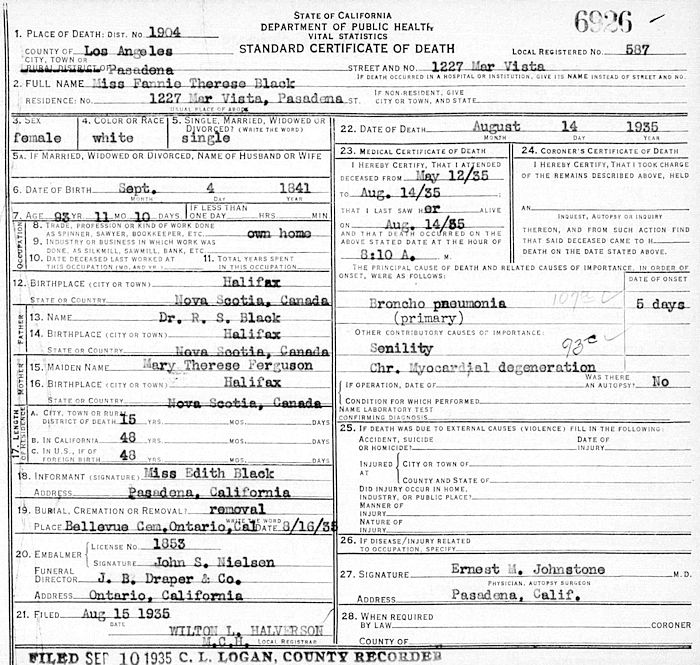 STATE OF CALIFORNIA
DEPARTMENT OF PUBLIC HEALTH
VITAL STATISTICS
STANDARD CERTIFICATE OF DEATH
6926
LOCAL REGISTERED NO. 587
1. PLACE OF DEATH: DIST. NO. 1904
COUNTY OF Los Angeles
CITY, TOWN OR
RURAL DISTRICT OF Pasadena
STREET AND NO. 1227 Mar Vista
IF DEATH OCCURRED IN A HOSPITAL OR INSTITUTION, GIVE ITS NAME INSTEAD OF STREET AND NO.
2. FULL NAME Miss Fannie Therese Black
RESIDENCE: NO. 1227 Mar Vista, Pasadena ST.
USUAL PLACE OF ABODE
IF NON-RESIDENT, GIVE
CITY OR TOWN, AND STATE
3. SEX
female
4. COLOR OR RACE
white
5. SINGLE, MARRIED, WIDOWED OR
DIVORCED? (WRITE THE WORD)
single
5A. IF MARRIED, WIDOWED OR DIVORCED, NAME OF HUSBAND OR WIFE
6. DATE OF BIRTH Sept. 4 1841
MONTH DAY YEAR
7. AGE 93 YR. 11 MO. 10 DAYS
IF LESS THAN
ONE DAY HRS. MIN
OCCUPATION
8. TRADE, PROFESSION OR KIND OF WORK DONE
AS SPINNER, SAWYER, BOOKKEEPER, ETC. own home
9. INDUSTRY OR BUSINESS IN WHICH WORK WAS
DONE, AS SILKMILL, SAWMILL, BANK, ETC.
10. DATE DECEASED LAST WORKED AT
THIS OCCUPATION (MO. AND YR.)
11. TOTAL YEARS SPENT
IN THIS OCCUPATION
12. BIRTHPLACE (CITY OR TOWN) Halifax
STATE OR COUNTRY Nova Scotia, Canada
FATHER
13. NAME Dr. R. S. Black
14. BIRTHPLACE (CITY OR TOWN) Halifax
STATE OR COUNTRY Nova Scotia, Canada
MOTHER
15. MAIDEN NAME Mary Therese Ferguson
16. BIRTHPLACE (CITY OR TOWN) Halifax
STATE OR COUNTRY Nova Scotia, Canada
17. LENGTH OF RESIDENCE
A. CITY, TOWN OR RURAL
DISTRICT OF DEATH 15 YRS. MOS. DAYS
B. IN CALIFORNIA 48 YRS. MOS. DAYS
C. IN U.S., IF OF
FOREIGN BIRTH 48 YRS. MOS. DAYS
18. INFORMANT (SIGNATURE) Miss Edith Black
ADDRESS Pasadena, California
19. BURIAL, CREMATION OR REMOVAL? removal
WRITE THE WORD
PLACE Bellevue Cem, Ontario, Cal DATE 8/16/35
20. EMBALMER
LICENSE NO. 1853
SIGNATURE John S. Nielsen
FUNERAL
DIRECTOR J. B. Draper & Co.
ADDRESS Ontario, California
21. FILED Aug 15 1935
DATE
WILTON L. HALVERSON
M.C.H. LOCAL REGISTRAR
22. DATE OF DEATH August 14 1935
MONTH DAY YEAR
23. MEDICAL CERTIFICATE OF DEATH
I HEREBY CERTIFY, THAT I ATTENDED
DECEASED FROM May 12/35
TO Aug. 14/35
THAT I LAST SAW her ALIVE
ON Aug. 14/35
AND THAT DEATH OCCURRED ON THE
ABOVE STATED DATE AT THE HOUR OF
8:10 A. M.
24. CORONER'S CERTIFICATE OF DEATH
I HEREBY CERTIFY, THAT I TOOK CHARGE
OF THE REMAINS DESCRIBED ABOVE, HELD
AN
INQUEST, AUTOPSY OR INQUIRY
THEREON, AND FROM SUCH ACTION FIND
THAT SAID DECEASED CAME TO H
DEATH ON THE DATE STATED ABOVE.
THE PRINCIPAL CAUSE OF DEATH AND RELATED CAUSES OF IMPORTANCE, IN ORDER OF
ONSET, WERE AS FOLLOWS:
DATE OF ONSET
Broncho pneumonia 5 days
(primary)
OTHER CONTRIBUTORY CAUSES OF IMPORTANCE:
Senility
Chr. Myocardial degeneration
IF OPERATION, DATE OF
WAS THERE
AN AUTOPSY? No
CONDITION FOR WHICH PERFORMED
NAME LABORATORY TEST
CONFIRMING DIAGNOSIS
25. IF DEATH WAS DUE TO EXTERNAL CAUSES (VIOLENCE) FILL IN THE FOLLOWING:
ACCIDENT, SUICIDE
OR HOMICIDE?
DATE OF
INJURY
INJURED
AT
CITY OR TOWN OF
COUNTY AND STATE OF
DID INJURY OCCUR IN HOME,
INDUSTRY, OR PUBLIC PLACE?
MANNER OF
INJURY
NATURE OF
INJURY
26. IF DISEASE/INJURY RELATED
TO OCCUPATION, SPECIFY
27. SIGNATURE Ernest M. Johnstone M.D.
PHYSICIAN, AUTOPSY SURGEON
ADDRESS Pasadena, Calif.
28. WHEN REQUIRED
BY LAW CORONER
COUNTY OF
FILED SEP 10 1935 C. L. LOGAN, COUNTY RECORDER